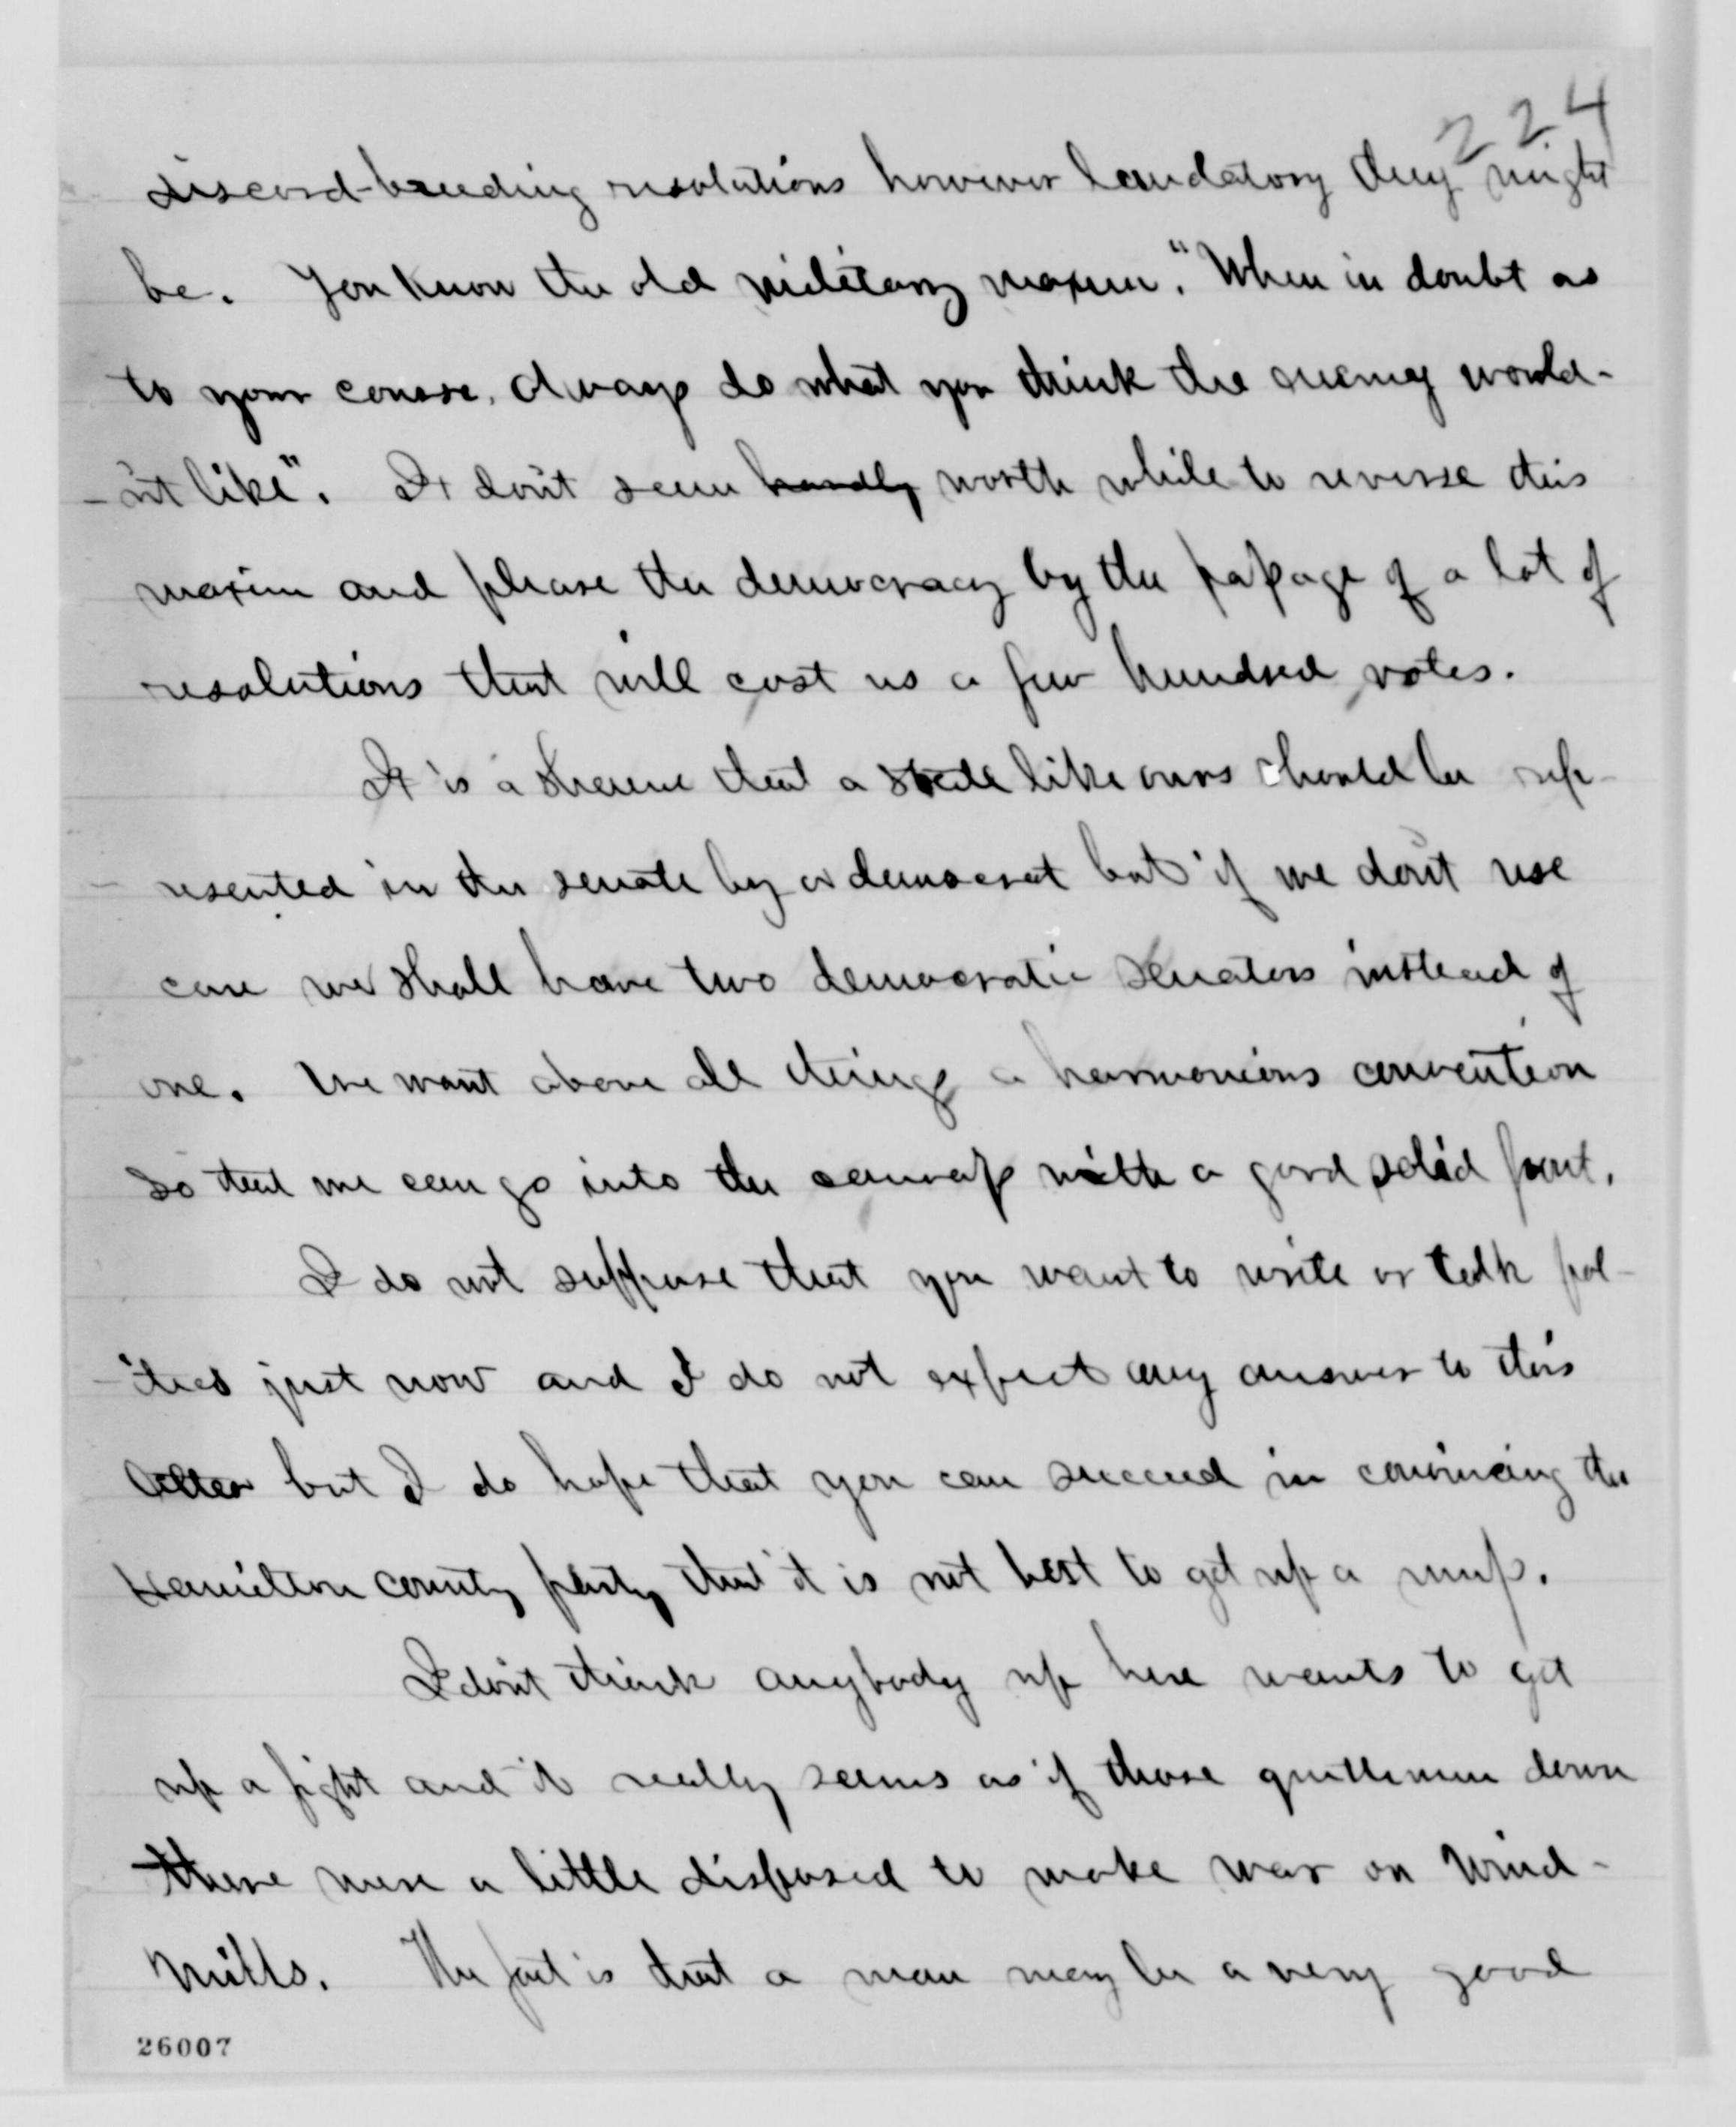 224
discord-breeding resolutions however laudatory they might
be. You know the old military maxim. "When in doubt as
to your course, always do what you think the enemy would-
-n't like". It don't seem hardly worth while to reverse this
maxim and please the democracy by the passage of a lot of
resolutions that will cost us a few hundred votes.
It is a shame that a state like ours should be rep-
-resented in the senate by a democrat but if we don't use
care we shall have two democratic senators instead of
one. We want above all things a harmonious convention
so that we can go into the canvass with a good solid front.
I do not suppose that you want to write or talk pol-
-itics just now and I do not expect any answer to this
letter but I do hope that you can succeed in convincing the
Hamilton county party that it is not best to get up a muss.
I don't think anybody up here wants to get
up a fight and it really seems as if those gentlemen down
there were a little disposed to make war on wind-
mills. The fact is that a man may be a very good
26007